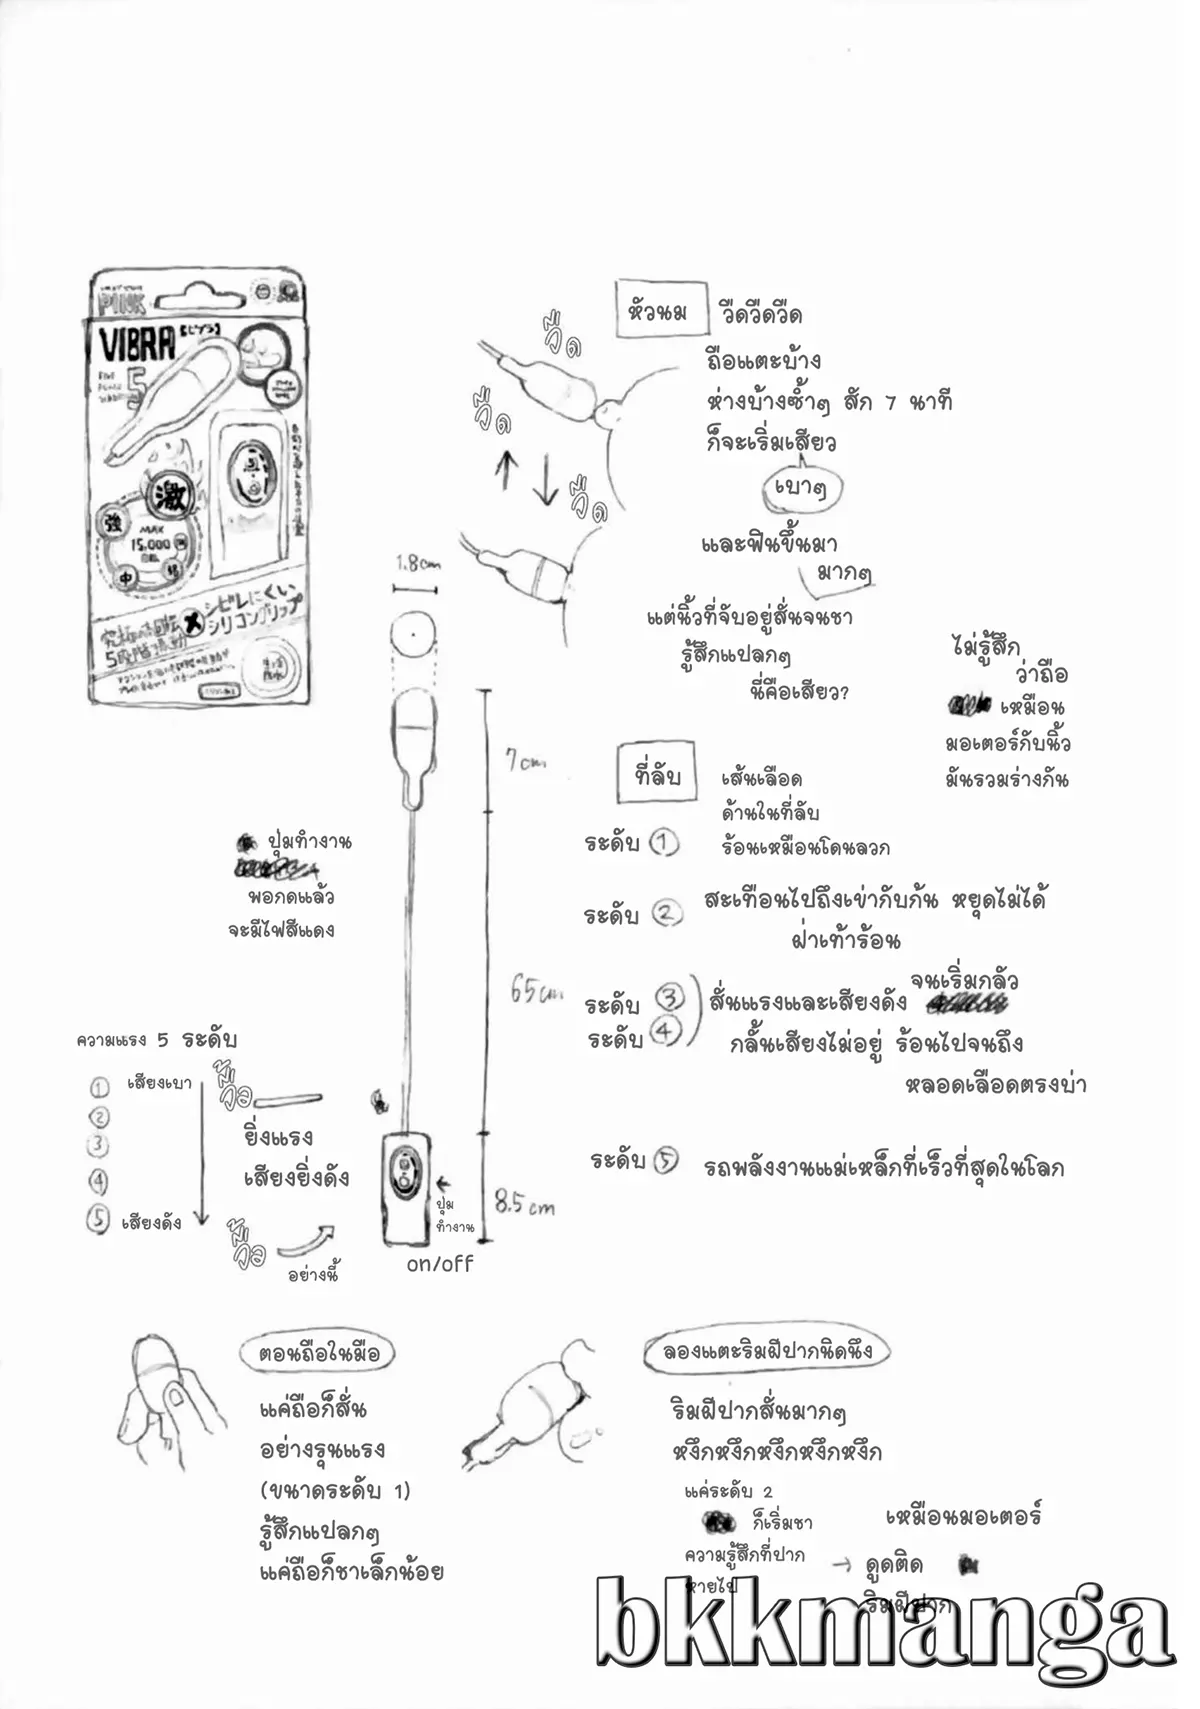 PINK
VIBRA
5
激
強
MAX
15,000
中
シビレにくい
シリコングリップ
5段階
หัวนม
วืดวืดวืด
ถือแตะบ้าง
ห่างบ้างซ้ำๆ สัก 7 นาที
ก็จะเริ่มเสียว
เบาๆ
และฟินขึ้นมา
มากๆ
แต่นิ้วที่จับอยู่สั่นจนชา
รู้สึกแปลกๆ
นี่คือเสียว?
ไม่รู้สึก
ว่าถือ
เหมือน
มอเตอร์กับนิ้ว
มันรวมร่างกัน
วืด
วืด
วืด
1.8cm
7cm
65cm
8.5cm
ปุ่มทำงาน
พอกดแล้ว
จะมีไฟสีแดง
ที่ลับ
เส้นเลือด
ด้านในที่ลับ
ระดับ ① ร้อนเหมือนโดนลวก
ระดับ ② สะเทือนไปถึงเข่ากับก้น หยุดไม่ได้
ฝ่าเท้าร้อน
จนเริ่มกลัว
ระดับ ③ สั่นแรงและเสียงดัง
ระดับ ④ กลั้นเสียงไม่อยู่ ร้อนไปจนถึง
หลอดเลือดตรงบ่า
ระดับ ⑤ รถพลังงานแม่เหล็กที่เร็วที่สุดในโลก
ความแรง 5 ระดับ
① เสียงเบา
②
③
④
⑤ เสียงดัง
ยิ่งแรง
เสียงยิ่งดัง
อย่างนี้
ปุ่ม
ทำงาน
on/off
ตอนถือในมือ
แค่ถือก็สั่น
อย่างรุนแรง
(ขนาดระดับ 1)
รู้สึกแปลกๆ
แค่ถือก็ชาเล็กน้อย
ลองแตะริมฝีปากนิดนึง
ริมฝีปากสั่นมากๆ
หงึกหงึกหงึกหงึกหงึก
แค่ระดับ 2
ก็เริ่มชา
ความรู้สึกที่ปาก
หายไป
เหมือนมอเตอร์
→ ดูดติด
ริมฝีปาก
bkkmanga